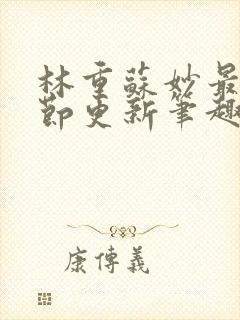 林重蘇妙最
節更新筆趣
康傳義